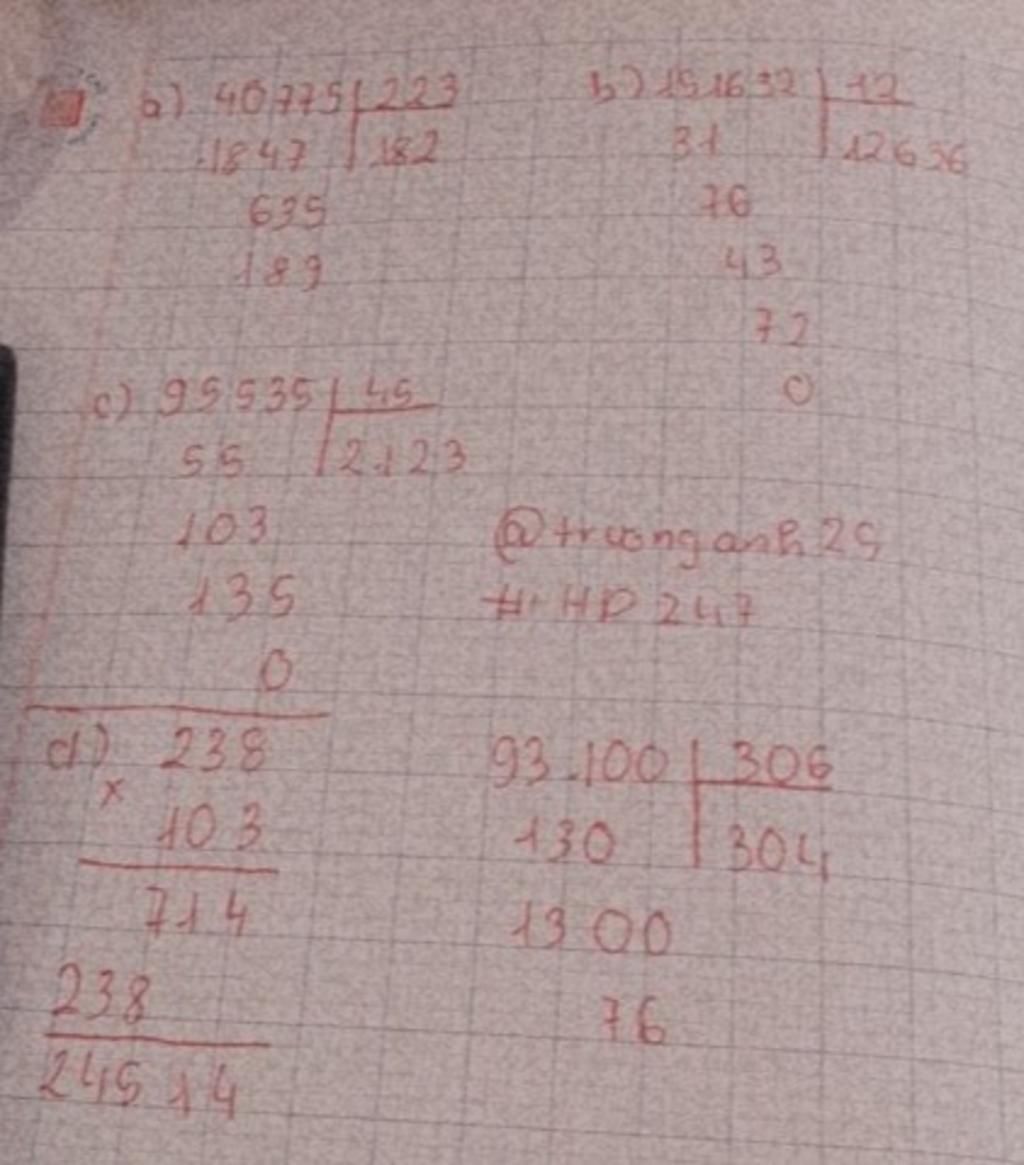 a) 40775 223
1847 182
635
189
b) 151632 12
31 12636
76
43
72
0
c) 95535 45
55 2123
103
135
0
@truonganh25
# HD247
d) 238
x
103
714
238
24514
93100 306
130 304
1300
76